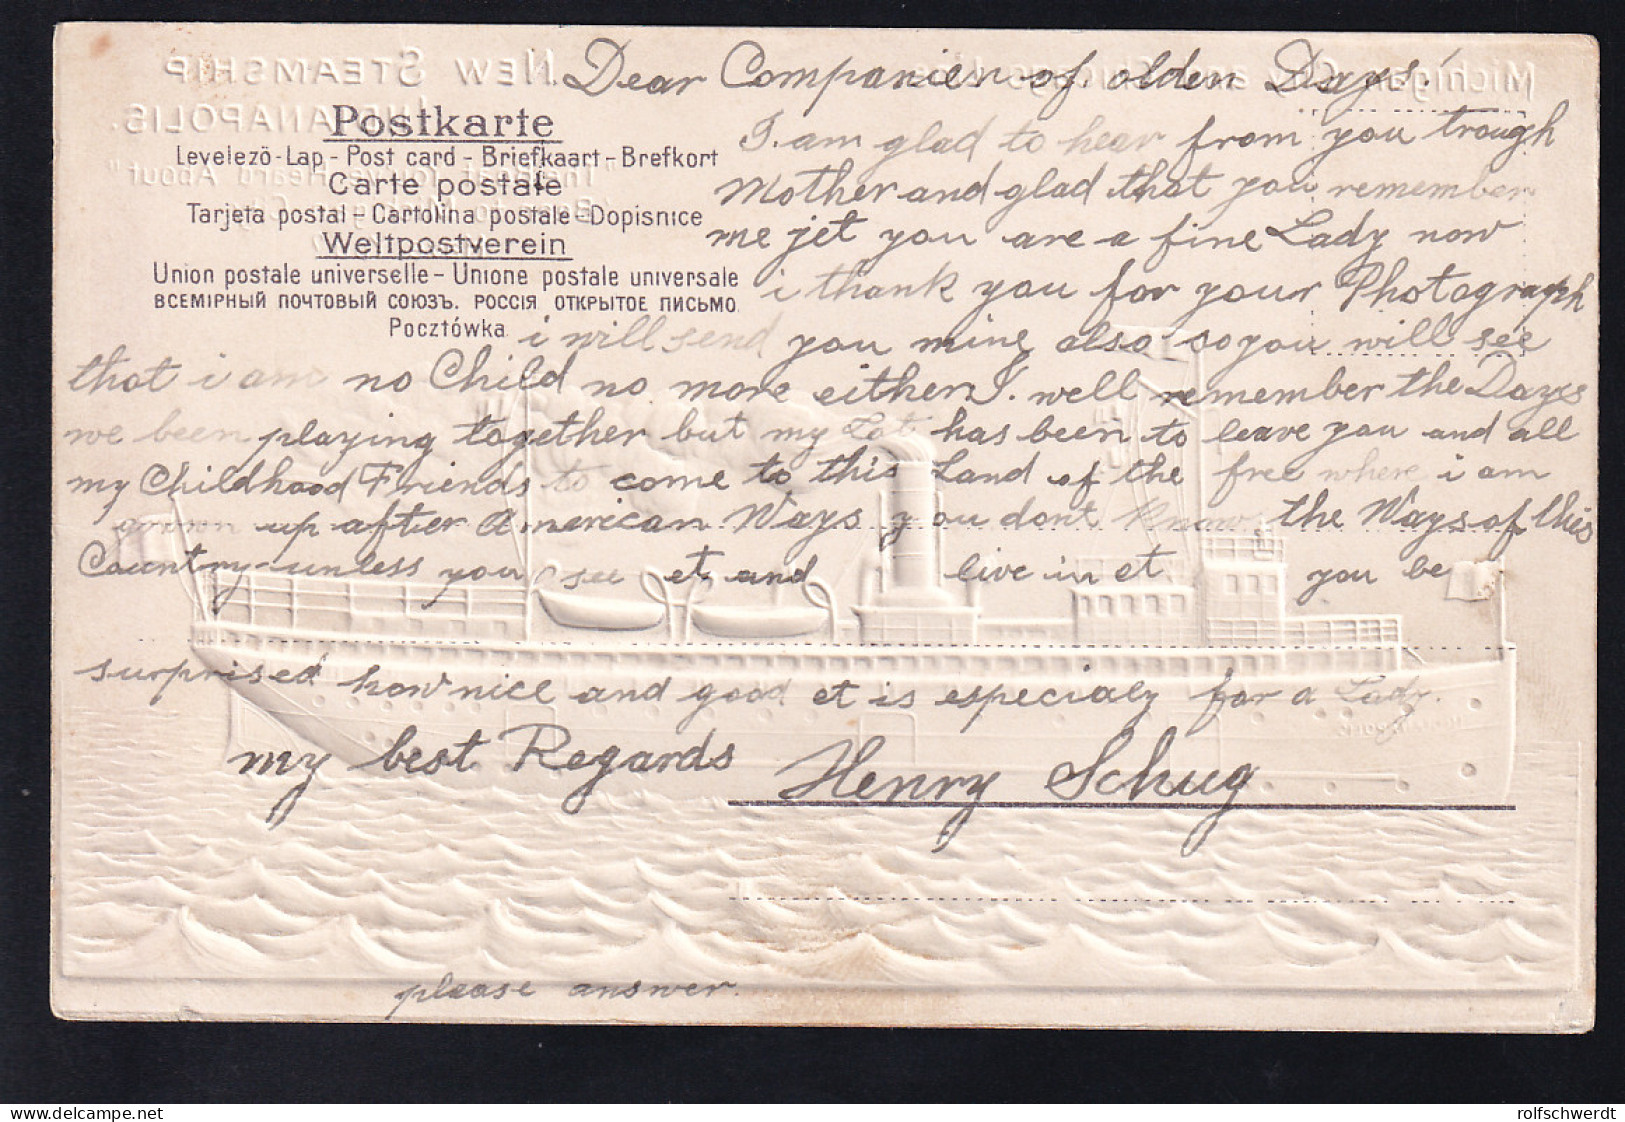 Dear Companien of olden Days.
Postkarte
Levelező-Lap - Post card - Briefkaart - Brefkort
Carte postale
Tarjeta postal - Cartolina postale - Dopisnice
Weltpostverein
Union postale universelle - Unione postale universale
ВСЕМІРНЫЙ ПОЧТОВЫЙ СОЮЗЪ. РОССІЯ ОТКРЫТОЕ ПИСЬМО
Pocztówka
I. am glad to hear from you trough
Mother and glad that you remember
me jet you are a fine Lady now
i thank you for your Photograph
i will send you mine also so you will see
that i am no Child no more either I. well remember the Days
we been playing together but my Lot has been to leave you and all
my Childhood Friends to come to this Land of the free where i am
grown up after American Ways you dont Know the Ways of this
Country unless you see et and live in et you be
surprised how nice and good et is especialy for a Lady.
my best Regards Henry Schug
please answer.
NEW STEAMSHIP
INDIANAPOLIS.
Michigan City and Chicago Line
rolfschwerdt
www.delcampe.net